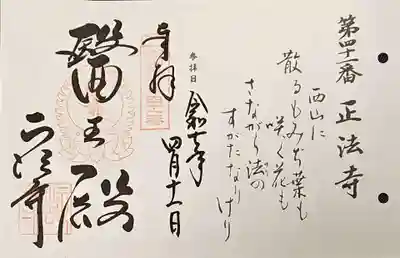 第四十一番 正法寺
西山に
散るもみぢ葉も
咲く花も
さながら法の
すがたなりけり
参拝日
令和七年
四月十一日
奉拝
醫王殿
正法寺